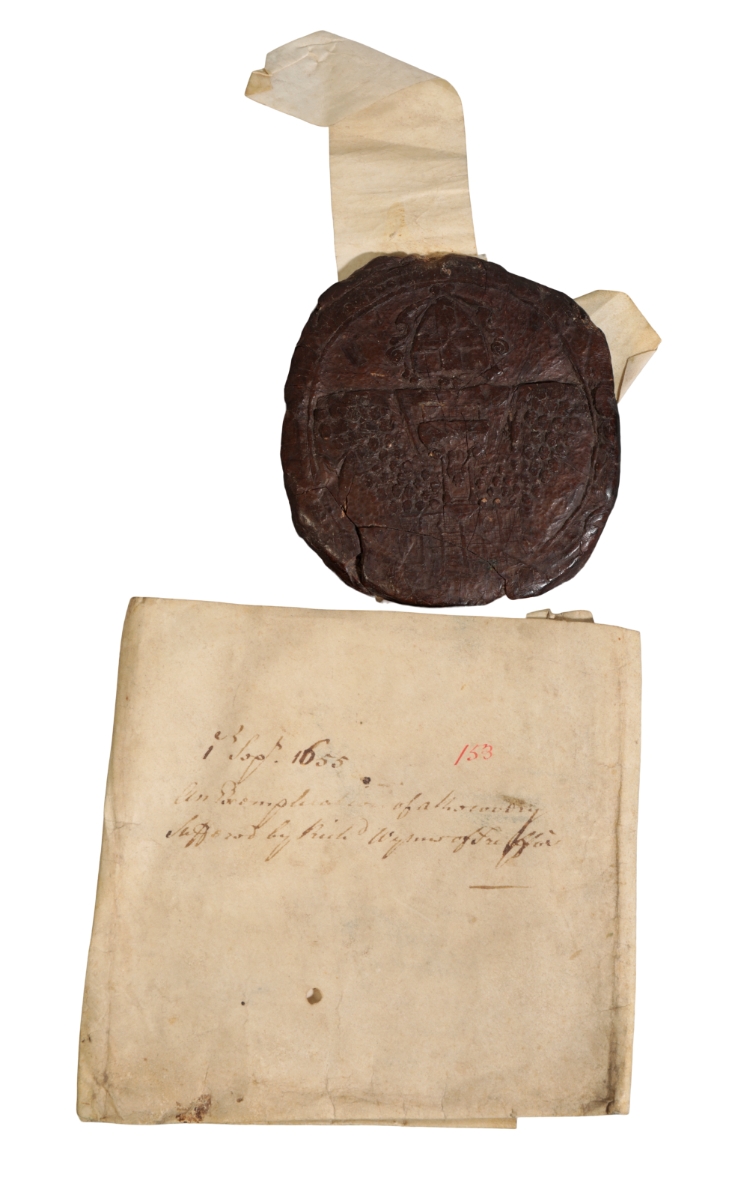 1st Sepr. 1655
153
An Exemplification of a Recovery
Suffered by Richd Wynne of